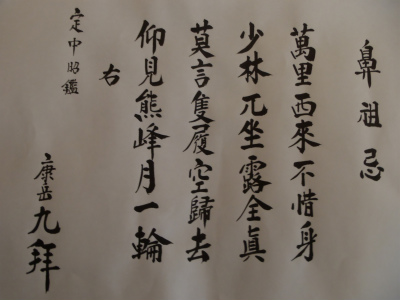 鼻祖忌
萬里西來不惜身
少林兀坐露全真
莫言隻履空歸去
仰見熊峰月一輪
右
定中昭鑑
康岳九拜